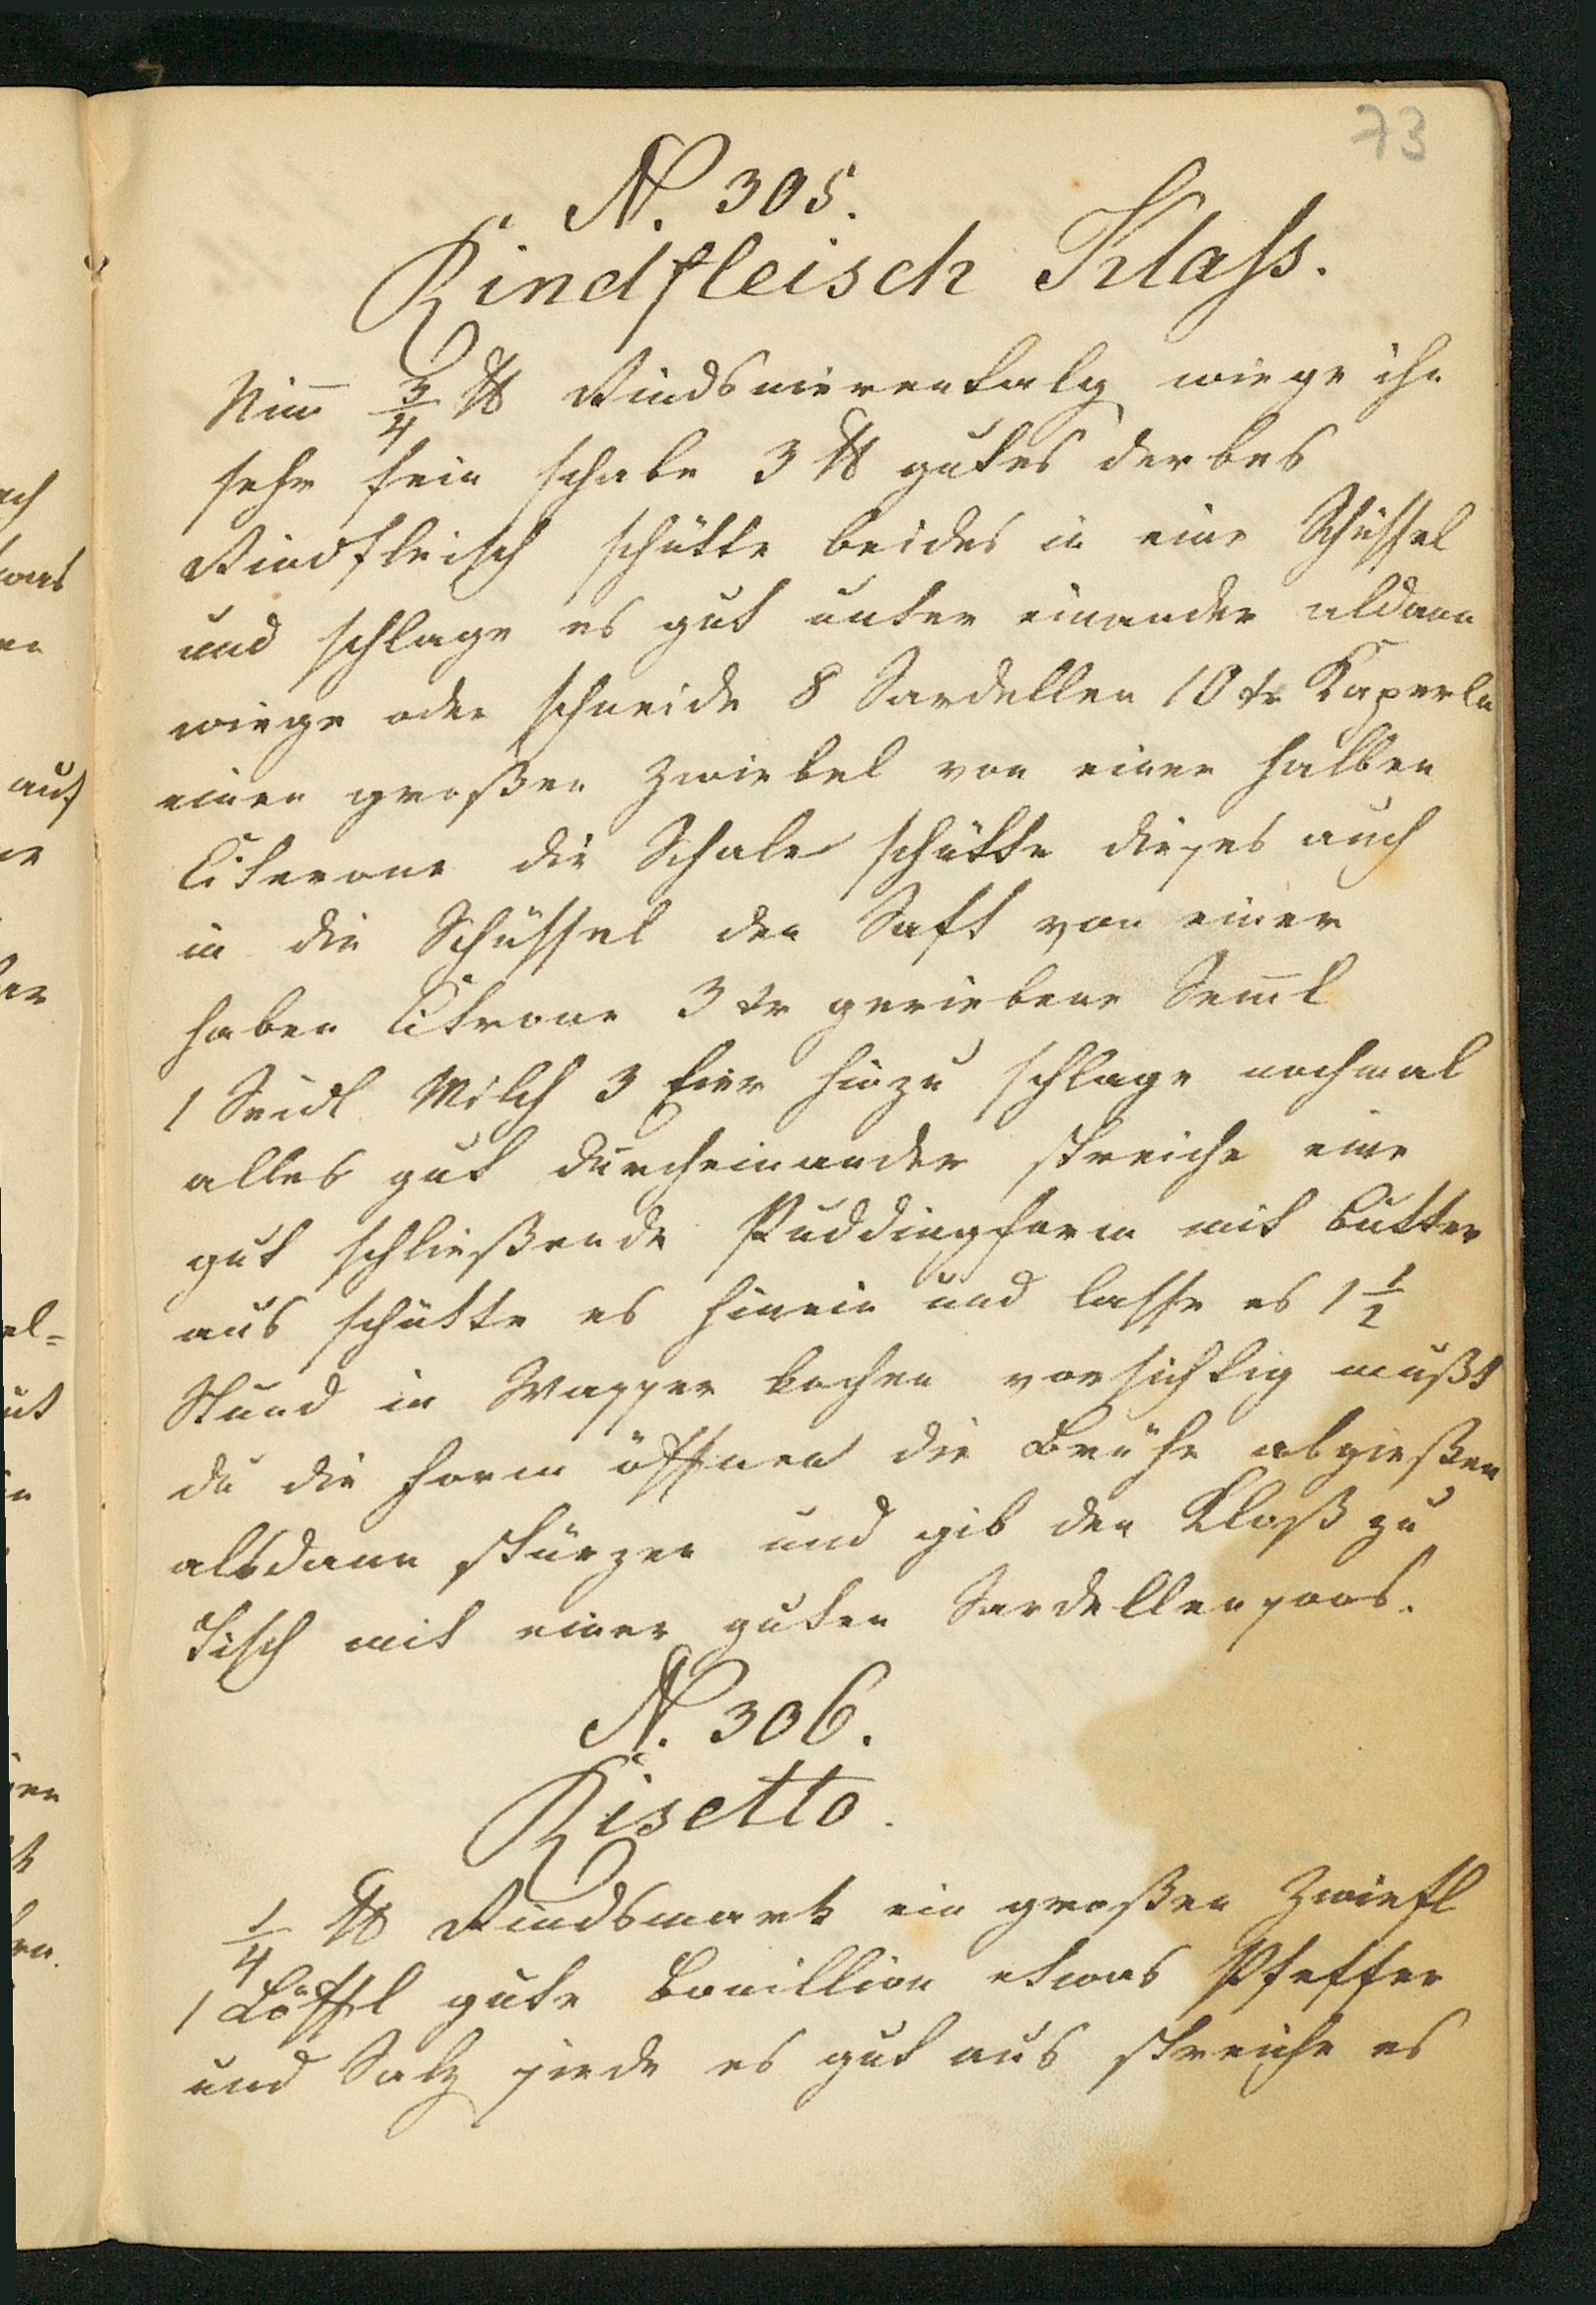 73
N. 305.
Rindfleisch Klass.
Nim̄ 3/4 ℔ Rindsnierentalg wiege ihn
sehr fein schabe 3 ℔ gutes derbes
Rindfleisch schütte beides in eine Schüssel
und schlage es gut unter einander aldann
wiege oder schneide 8 Sardellen 10 kr Kaperln
einen großen Zwiebel von einer halben
Citerone die Schale schütte dieses auch
in die Schüssel den Saft von einer
haben Citrone 3 kr geriebene Sem̄l
1 Seidl Milch 3 Eier hinzu schlage nochmal
alles gut durcheinander streiche eine
gut schließende Puddingform mit Butter
aus schütte es hinein und lasse es 1 1/2
Stund in Wasser kochen vorsichtig mußt
du die Form öffnen die Brühe abgießen
alsdann stürzen und gib den Klaß zu
Tisch mit einer guten Sardellensoos.
N. 306.
Risetto.
1/4 ℔ Rindsmark ein großen Zwiefl
1 Löffl gute Bouillion etwas Pfeffer
und Salz siede es gut aus streiche es